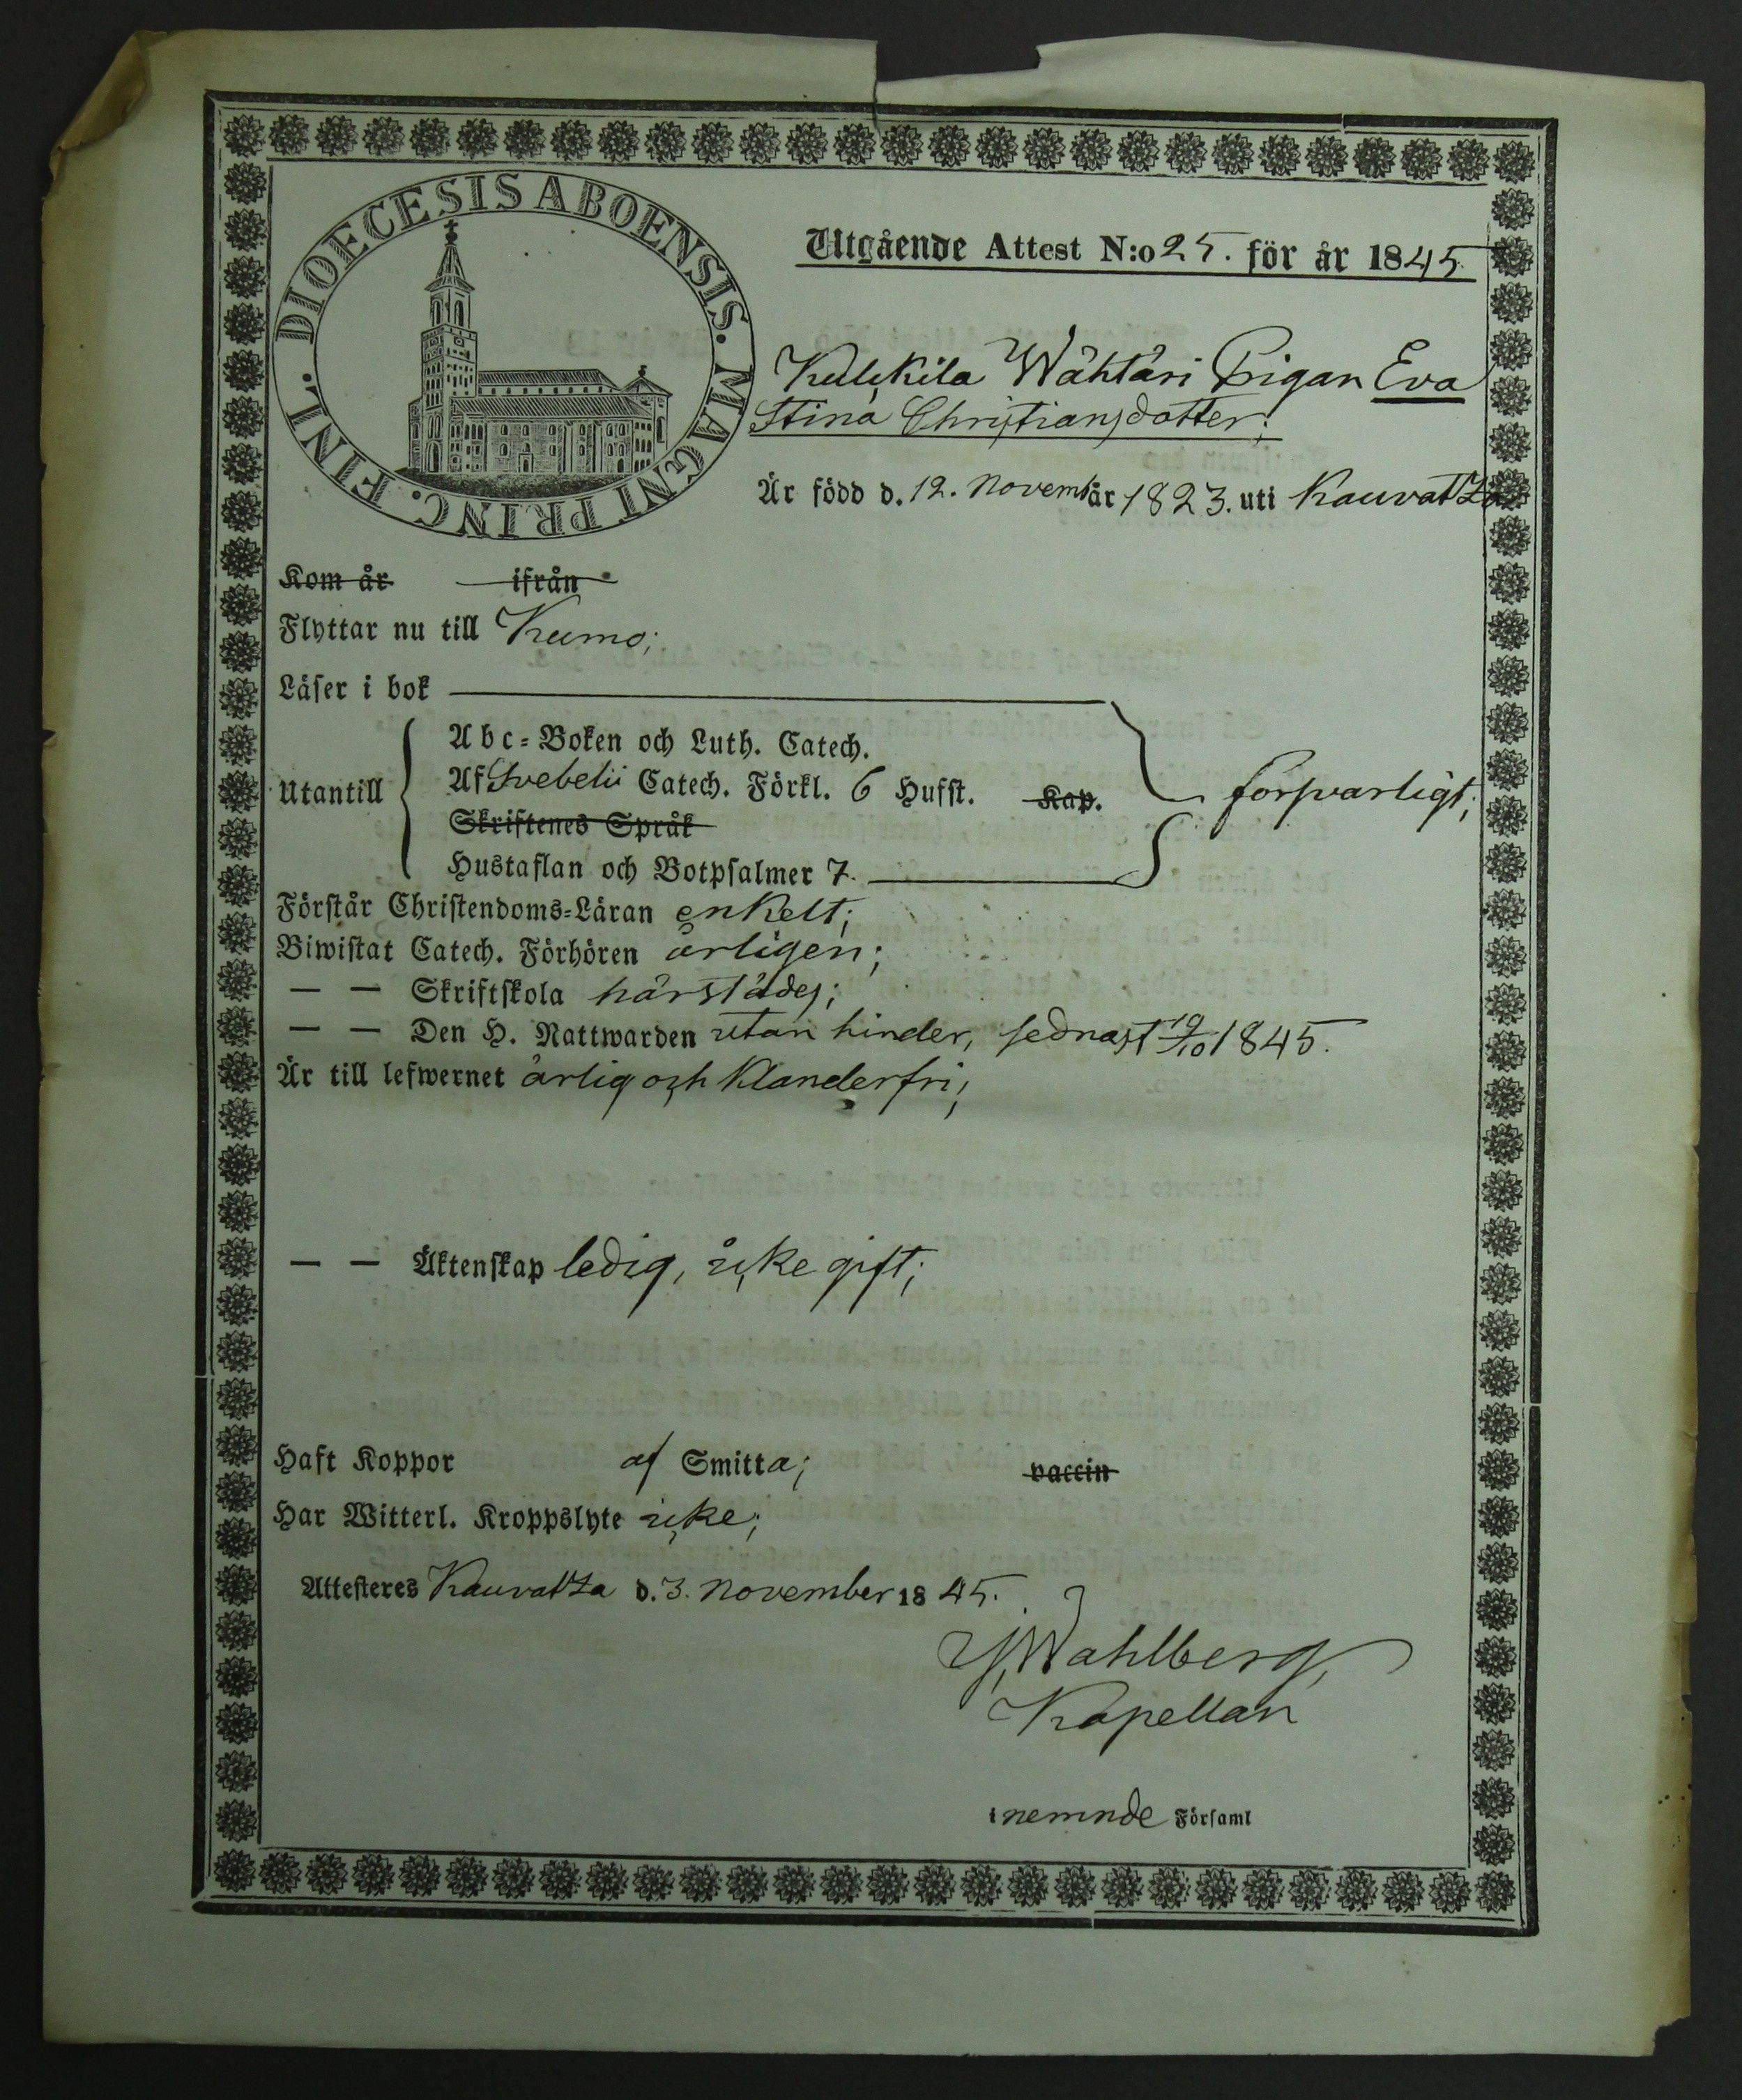 DIOECESIS ABOENSIS. MAGNI PRINC. FINL.
Utgående Attest N:o 25. för år 1845.
Kulkkila Wähtäri Pigan Eva
Stina Christiansdotter;
Är född d. 12. Novemb år 1823. uti Kauvatza
Kom år ifrån
Flyttar nu till Kumo;
Läser i bok
Utantill
Abc-Boken och Luth. Catech.
Af Svebelii Catech. Förkl. 6 Hufst. Kap.
försvarligt;
Skriftenes Språk
Hustaflan och Botpsalmer 7.
Förstår Christendoms-Läran enkelt;
Biwistat Catech. Förhören årligen;
— — Skriftskola härstädes;
— — Den H. Nattwarden utan hinder, sednast 19/10 1845.
Är till lefwernet ärlig och klanderfri;
— — Äktenskap ledig, icke gift;
Haft Koppor af Smitta; vaccin
Har Witterl. Kroppslyte icke;
Attesteres Kauvatza d. 3. November 1845.
Wahlberg
Kapellan
i nemnde Församl